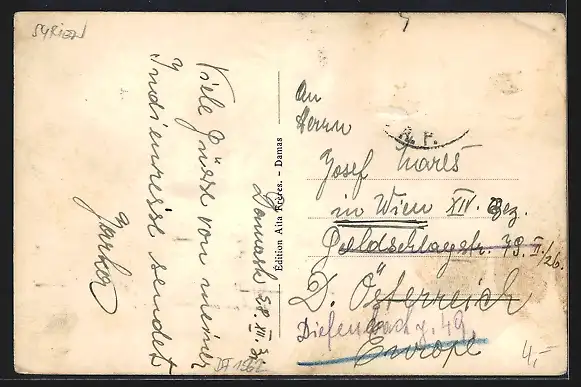 SYRIEN
Viele Grüsse von meiner
Indienreise sendet
Jarka
Damask 28. XII. 3
Édition Aita Frères. - Damas
An
Herrn
Josef Mareš
in Wien XIV. Bez.
Goldschlagstr. 79. II/26.
D. Österreich
Diefenbach 49
Europe
4,-